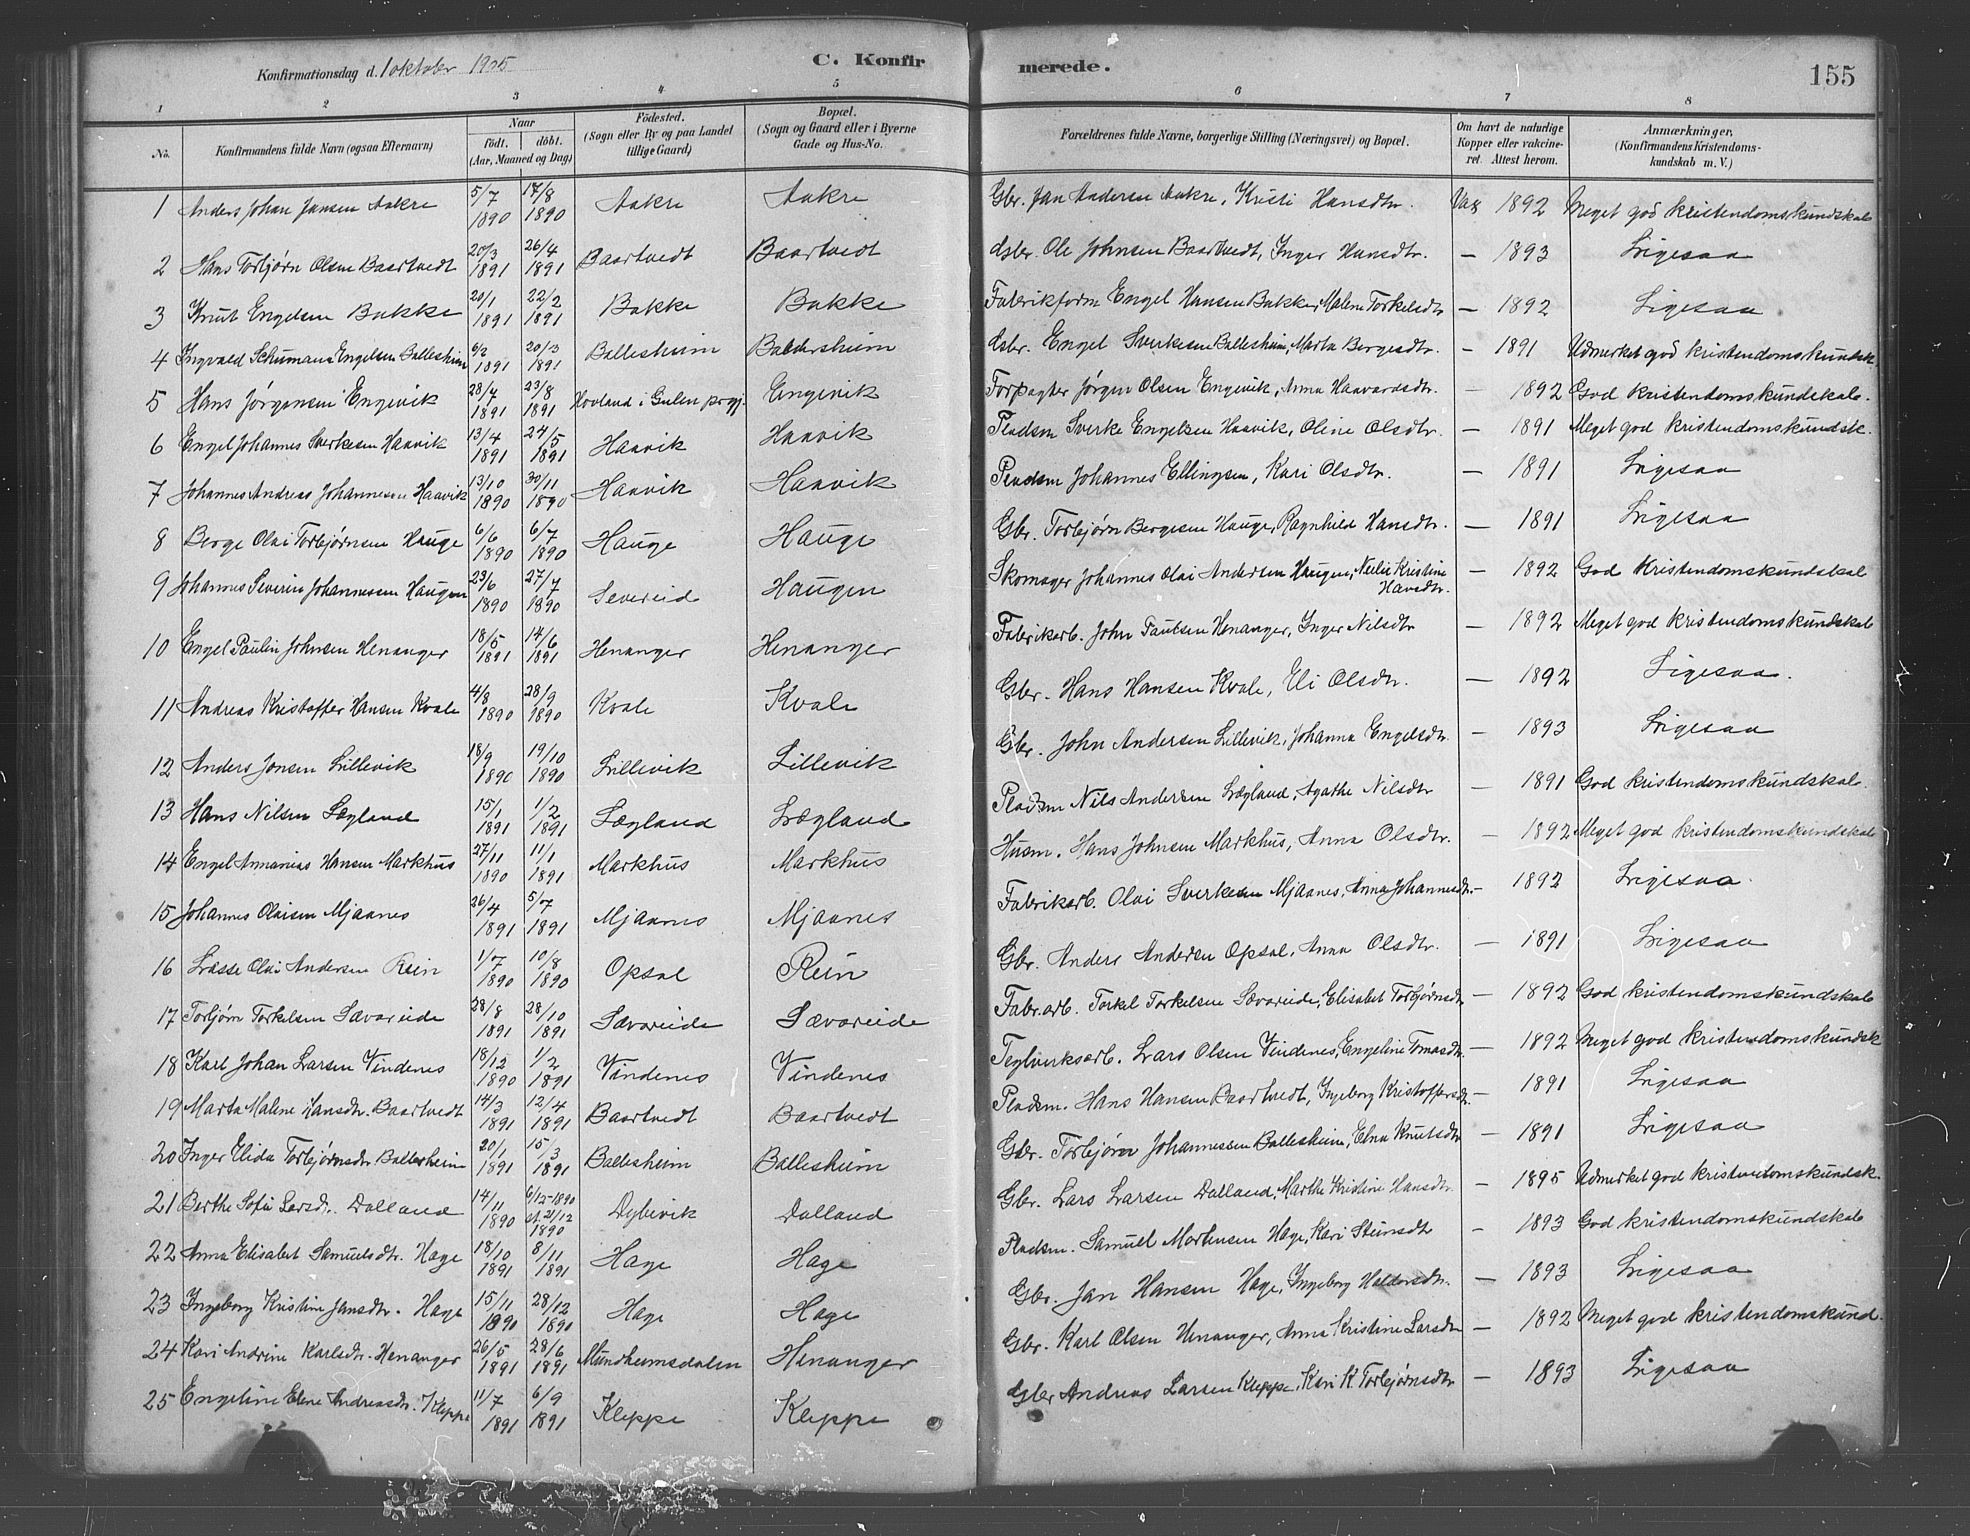 Konfirmationsdag d. 1 oktober 1905 C. Konfirmerede. 155
1 2 3 4 5 6 7 8
No. Konfirmandens fulde Navn (ogsaa Efternavn) Naar födt. döbt. (Aar, Maaned og Dag) Födested. (Sogn eller By og paa Landet tillige Gaard) Bopæl. (Sogn og Gaard eller i Byerne Gade og Hus-No. Forældrenes fulde Navne, borgerlige Stilling (Næringsvei) og Bopæl. Om havt de naturlige Kopper eller vakcineret. Attest herom. Anmærkninger. (Konfirmandens Kristendomskundskab m. V.)
1 Anders Johan Jansen Aakre 5/7 1890 17/8 1890 Aakre Aakre Gbr. Jan Andersen Aakre, Kristi Hansdtr. Vax 1892 Meget god kristendomskundskab
2 Hans Torbjørn Olsen Baartvedt 20/3 1891 26/4 1891 Baartvedt Baartvedt Gbr. Ole Johnsen Baartvedt, Inger Hansdtr. — 1893 Ligesaa
3 Knut Engelsen Bakke 20/1 1891 22/2 1891 Bakke Bakke Fabrikform Engel Hansen Bakke, Malene Torkelsdtr — 1892 Ligesaa
4 Ingvald Schumann Engelsen Balleshim 6/2 1891 20/3 1891 Balleshim Baldersheim Gbr. Engel Sverkesen Balleshim, Marta Bergesdtr. — 1891 Udmerket god kristendomskundsk
5 Hans Jørgensen Engevik 28/4 1891 23/8 1891 Hovland i Gulen prgj. Engevik Forpagter Jørgen Olsen Engevik, Anna Haavardsdtr. — 1892 God kristendomskundskab.
6 Engel Johannes Sverkesen Haavik 13/4 1891 24/5 1891 Haavik Haavik Pladsm Sverke Engelsen Haavik, Oline Olsdtr. — 1891 Meget god kristendomskundsk.
7 Johannes Andreas Johannesen Haavik 13/10 1890 30/11 1890 Haavik Haavik Pladsm Johannes Ellingsen, Kari Olsdtr. — 1891 Ligesaa
8 Berge Olai Torbjørnsen Hauge 6/6 1890 6/7 1890 Hauge Hauge Gbr. Torbjørn Bergesen Hauge, Ragnhild Hansdtr. — 1891 Ligesaa
9 Johannes Severin Johannessen Haugen 23/6 1890 27/7 1890 Severeid Haugen Skomager Johannes Olai Andersen Haugen, Neelie Kristine Hansdtr. — 1892 God kristendomskundskab
10 Engel Paulin Johnsen Henanger 18/5 1891 14/6 1891 Henanger Henanger Fabrikarb. John Paulsen Henanger, Inger Nilsdtr — 1892 Meget god kristendomskundskab
11 Andreas Kristoffer Hansen Kvale 4/8 1890 28/9 1890 Kvale Kvale Gbr. Hans Hansen Kvale, Eli Olsdtr. — 1892 Ligesaa.
12 Anders Jonsen Lillevik 18/9 1890 19/10 1890 Lillevik Lillevik Gbr. John Andersen Lillevik, Johanna Engelsdtr. — 1893 Ligesaa
13 Hans Nilsen Lægland 15/1 1891 1/2 1891 Lægland Lægland Pladsm Nils Andersen Lægland, Agathe Nilsdtr — 1891 God kristendomskundskab.
14 Engel Annanias Hansen Markhus 27/11 1890 11/1 1891 Markhus Markhus Husm. Hans Johnsen Markhus, Anna Olsdtr. — 1892 Meget god kristendomskundskab
15 Johannes Olaisen Mjaanes 26/4 1891 5/7 1891 Mjaanes Mjaanes Fabrikarb. Olai Sverkesen Mjaanes, Anna Johannesdtr — 1892 Ligesaa.
16 Lasse Olai Andersen Rein 1/7 1890 10/8 1890 Opsal Rein Gbr. Anders Andersen Opsal, Anna Olsdtr. — 1891 Ligesaa
17 Torbjørn Torkelsen Sævareide 28/8 1891 28/10 1891 Sævareide Sævareide Fabr.arb. Torkel Torkelsen Sævareide, Elisabet Torbjørnsdtr — 1892 God kristendomskundskab
18 Karl Johan Larsen Vindenes 18/12 1890 1/2 1891 Vindenes Vindenes Teglverksarb. Lars Olsen Vindenes, Engeline Tomasdtr. — 1892 Meget god kristendomskundsk
19 Marta Malene Hansdtr. Baartvedt 14/3 1891 12/4 1891 Baartvedt Baartvedt Pladsm. Hans Hansen Baartvedt, Ingeborg Kristoffersdtr. — 1891 Ligesaa
20 Inger Elida Torbjørnsdtr. Ballesheim 20/1 1891 15/3 1891 Ballesheim Ballesheim Gbr. Torbjørn Johannessen Ballesheim, Elna Knutsdtr — 1891 Ligesaa
21 Berthe Sofie Larsdtr. Dalland 14/11 1890 6/12-1890 st. 21/12 1890 Dybevik Dalland Gbr. Lars Larsen Dalland, Marthe Kristine Hansdtr. — 1895 Udmerket god kristendomskundsk.
22 Anna Elisabet Samuelsdtr. Hage 18/10 1891 8/11 1891 Hage Hage Pladsm. Samuel Mortensen Hage, Kari Steinsdtr — 1893 God kristendomskundskab
23 Ingeborg Kristine Jansdtr. Hage 15/11 1890 28/12 1890 Hage Hage Gbr. Jan Hansen Hage, Ingeborg Haldorsdtr. — 1893 Ligesaa
24 Kari Andrine Karlsdtr. Henanger 26/5 1891 28/6 1891 Mundheimsdalen Henanger Gbr. Karl Olsen Henanger, Anna Kristine Larsdtr — 1892 Meget god kristendomskund.
25 Engeline Elene Andreasdtr. Kleppe 11/7 1891 6/9 1891 Kleppe Kleppe Gbr Andreas Larsen Kleppe, Kari K. Torbjørnsdtr — 1893 Ligesaa